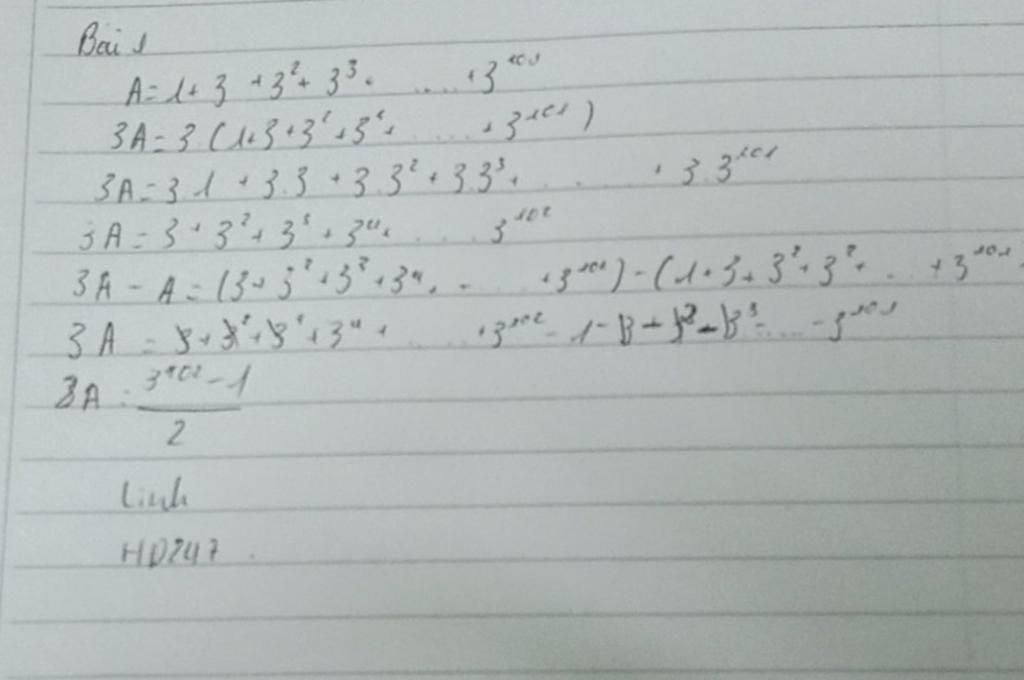 Bài 1
A = 1 + 3 + 3² + 3³ + ..... + 3¹⁰¹
3A = 3 (1 + 3 + 3² + 3³ + ..... + 3¹⁰¹)
3A = 3.1 + 3.3 + 3.3² + 3.3³ + ..... + 3.3¹⁰¹
3A = 3 + 3² + 3³ + 3⁴ + ..... 3¹⁰²
3A - A = (3 + 3² + 3³ + 3⁴ + ..... + 3¹⁰²) - (1 + 3 + 3² + 3³ + ... + 3¹⁰¹
3A = 3 + 3² + 3³ + 3⁴ + ..... + 3¹⁰² - 1 - 3 - 3² - 3³ - ..... - 3¹⁰¹
3A = 3¹⁰² - 1
2
Linh
HD247